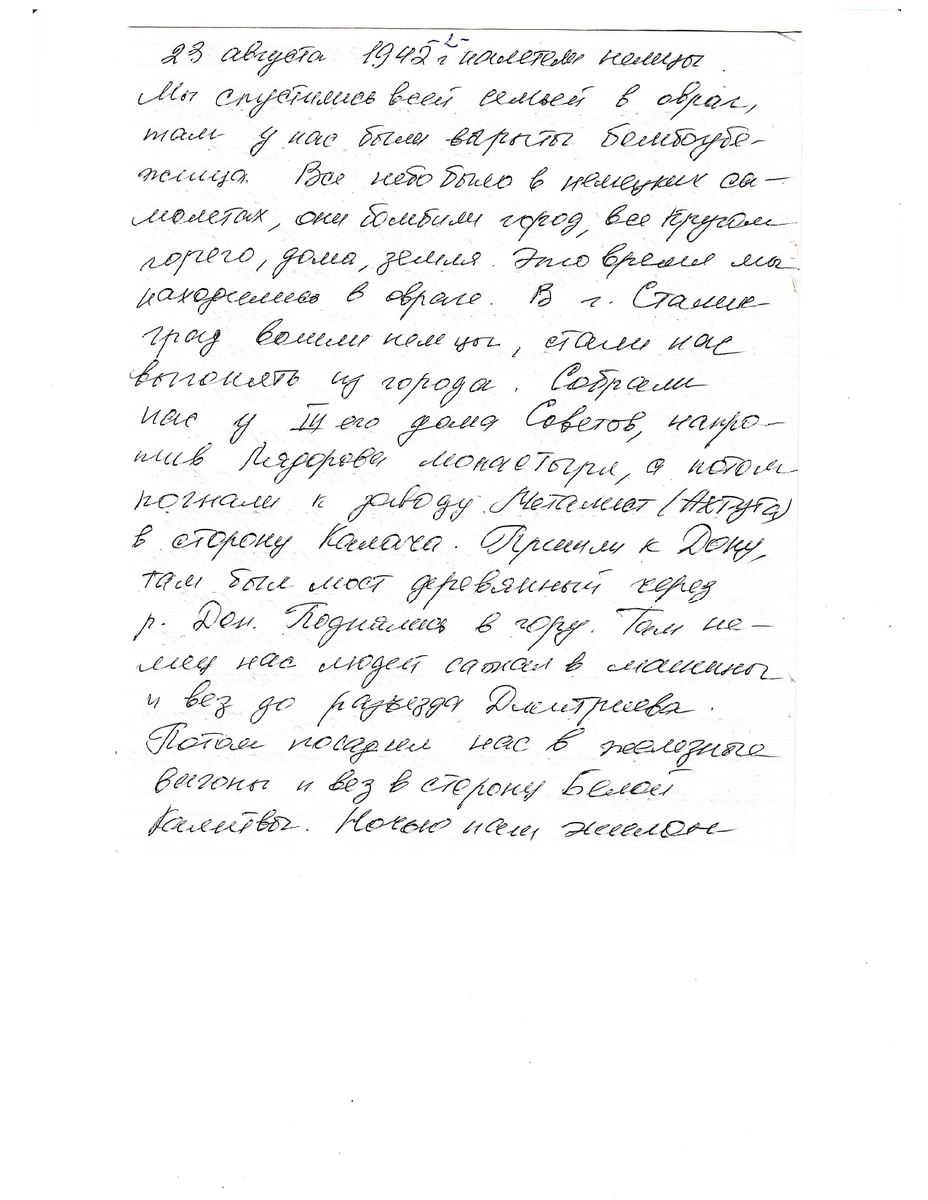 -2-
23 августа 1942 г налетели немцы.
Мы спустились всей семьей в овраг,
там у нас были вырыты бомбоубе-
жища. Все небо было в немецких са-
молетах, они бомбили город, все кругом
горело, дома, земля. Это время мы
находились в овраге. В г. Сталин
град вошли немцы, стали нас
выгонять из города. Собрали
нас у III его дома Советов, напро-
тив Мядорова монастыря, а потом
погнали к заводу Металист (Ахтуба)
в сторону Калача. Пришли к Дону,
там был мост деревянный через
р. Дон. Поднялись в гору. Там не-
мец нас людей сажал в машины
и вез до разъезда Дмитриева.
Потом посадили нас в железные
вагоны и вез в сторону Белой
Калитвы. Ночью наш эшелон